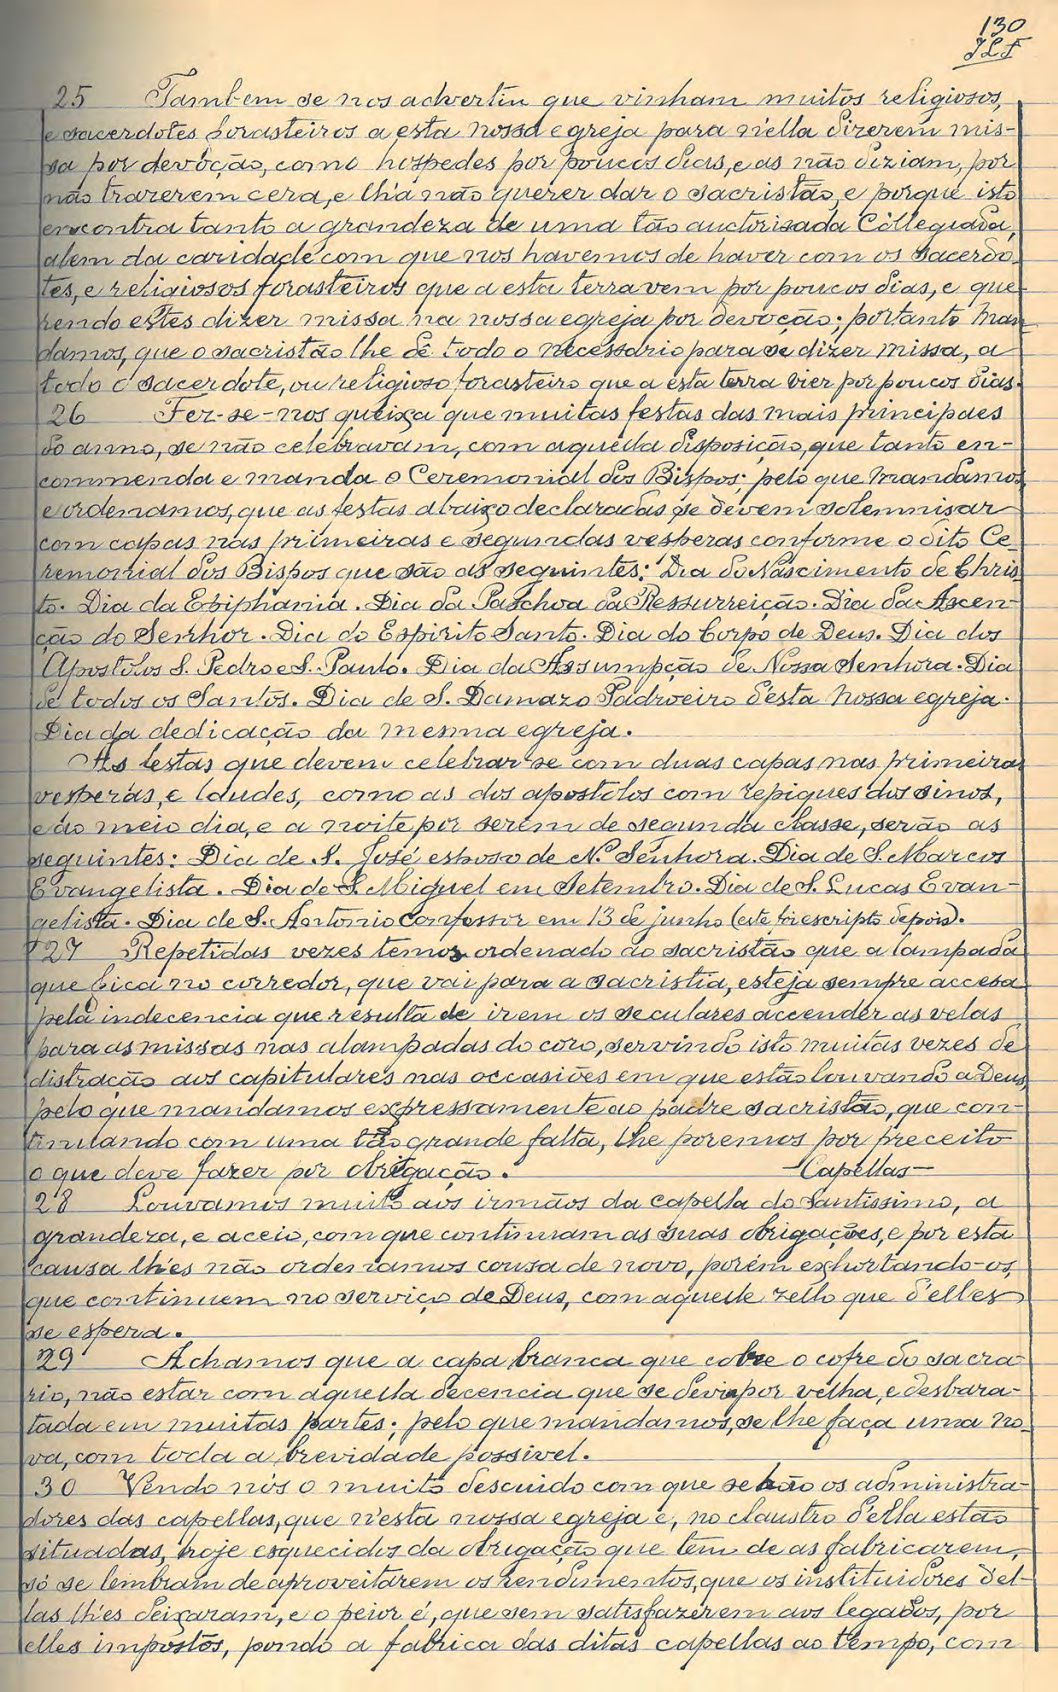 130
JLF
25 Tambem se nos advertiu que vinham muitos religiosos,
e sacerdotes forasteiros a esta nossa egreja para n'ella dizerem mis-
sa por devoção, como hospedes por poucos dias, e as não diziam, por
não trazerem cera, e lh'a não querer dar o sacristão, e porque isto
encontra tanto a grandeza de uma tão auctorisada Collegiada,
alem da caridade com que nos havemos de haver com os sacerdo-
tes, e religiosos forasteiros que a esta terra vem por poucos dias, e que-
rendo estes dizer missa na nossa egreja por devoção; portanto man-
damos, que o sacristão lhe dê todo o necessario para se dizer missa, a
todo o sacerdote, ou religioso forasteiro que a esta terra vier por poucos dias.
26 Fez-se-nos queixa que muitas festas das mais principaes
do anno, se não celebravam, com aquella disposição, que tanto en-
commenda e manda o Ceremonial dos Bispos; pelo que mandamos
e ordenamos, que as festas abaixo declaradas se devem solemnisar
com capas nas primeiras e segundas vesperas conforme o dito Ce-
remonial dos Bispos que são as seguintes: Dia do Nascimento de Chris-
to. Dia da Epiphania. Dia da Paschoa da Ressurreição. Dia da Ascen-
ção do Senhor. Dia do Espirito Santo. Dia do Corpo de Deus. Dia dos
Apostolos S. Pedro e S. Paulo. Dia da Assumpção de Nossa Senhora. Dia
de todos os Santos. Dia de S. Damazo Padroeiro d'esta nossa egreja.
Dia da dedicação da mesma egreja.
As festas que devem celebrar-se com duas capas nas primeiras
vesperas, e laudes, como as dos apostolos com repiques dos sinos,
e ao meio dia, e a noite por serem de segunda classe, serão as
seguintes: Dia de S. José esposo de N. Senhora. Dia de S. Marcos
Evangelista. Dia de S. Miguel em Setembro. Dia de S. Lucas Evan-
gelista. Dia de S. Antonio Confessor em 13 de junho (este foi escripto depois).
27 Repetidas vezes temos ordenado ao sacristão que a lampada
que fica no corredor, que vai para a sacristia, esteja sempre accesa
pela indecencia que resulta de irem os seculares accender as velas
para as missas nas alampadas do coro, servindo isto muitas vezes de
distração aos capitulares nas occasiões em que estão louvando a Deus,
pelo que mandamos expressamente ao padre sacristão, que con-
tinuando com uma tão grande falta, lhe poremos por preceito
o que deve fazer por obrigação. —Capellas—
28 Louvamos muito aos irmãos da capella do Santissimo, a
grandeza, e aceio, com que continuam as suas obrigações, e por esta
causa lh'es não ordenamos cousa de novo, porém exhortando-os,
que continuem no serviço de Deus, com aquelle zello que d'elles
se espera.
29 Achamos que a capa branca que cobre o cofre do sacra-
rio, não estar com aquella decencia que se devia por velha, e desbara-
tada em muitas partes; pelo que mandamos, se lhe faça uma no-
va, com toda a brevidade possivel.
30 Vendo nós o muito descuido com que se hão os administra-
dores das capellas, que n'esta nossa egreja e, no claustro d'ella estão
situadas, hoje esquecidos da obrigação que têm de as fabricarem,
só se lembram de aproveitarem os rendimentos, que os instituidores d'el-
las lh'es deixaram, e o peior é, que sem satisfazerem aos legados, por
elles impostos, pondo a fabrica das ditas capellas ao tempo, com